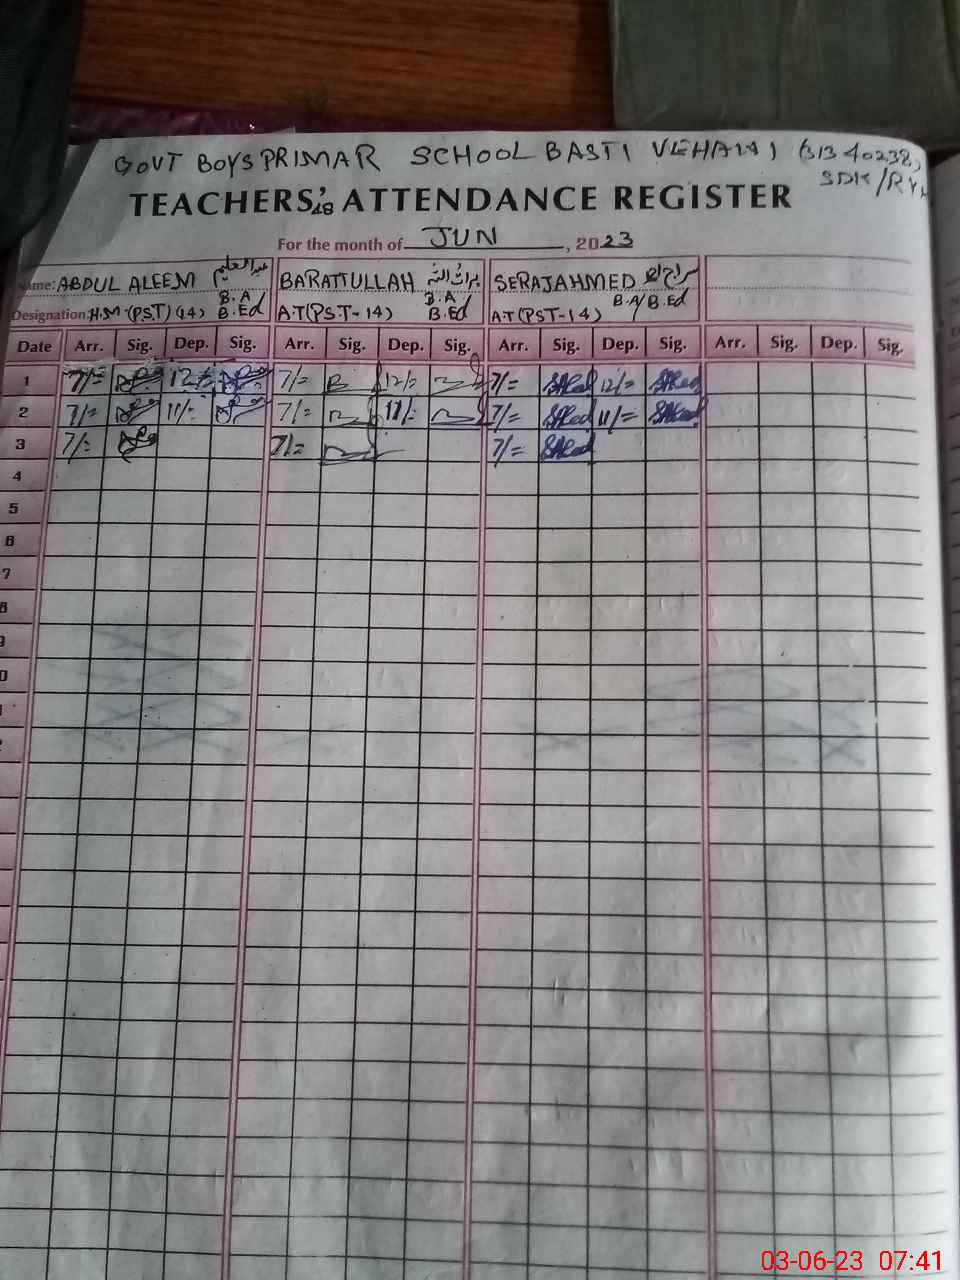 GOVT BOYS PRIMAR SCHOOL BASTI VEHARI (31340238)
SDK/RYK
TEACHERS' ATTENDANCE REGISTER
For the month of JUN, 2023
Name: ABDUL ALEEM عبدالعلیم BARATTULLAH براٹ اللہ SERAJAHMED سراج احمد
B.A B.A
Designation: H.M.(P.S.T) (14) B.Ed A.T(PST-14) B.Ed A.T(PST-14) B.A/B.Ed
Date Arr. Sig. Dep. Sig. Arr. Sig. Dep. Sig. Arr. Sig. Dep. Sig. Arr. Sig. Dep. Sig.
1 7/= 12/= 7/= 12/= 7/= 12/=
2 7/= 11/= 7/= 11/= 7/= 11/=
3 7/= 7/= 7/=
4
5
6
7
8
9
0
1
2
03-06-23 07:41